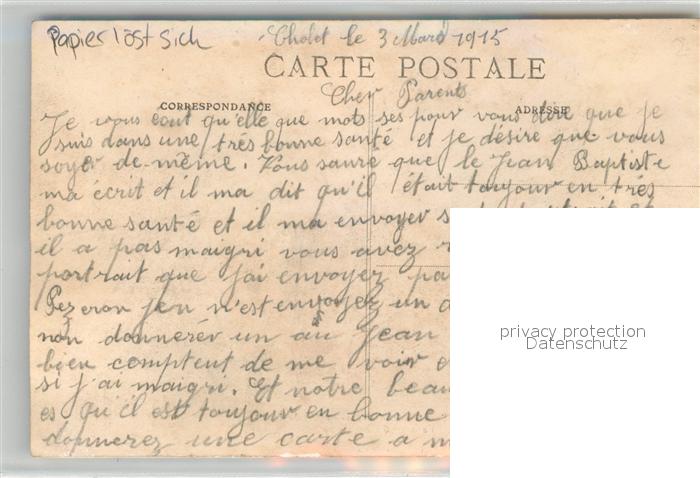 Papier löst sich
Cholet le 3 Mars 1915
CARTE POSTALE
Cher Parents
CORRESPONDANCE
ADRESSE
Je vous écrit qu'elle que mots ses pour vous dire que je
suis dans une trés bonne santé et je désire que vous
soyer de-même. Vous saure que le Jean Baptiste
ma écrit et il ma dit qu'il était toujour en trés
bonne santé et il ma envoyer
il a pas maigri vous avez
portrait que j'ai envoyez
Pezeron jen n'est envoyez un
non donnerér un au Jean
bien comptent de me voir
si j'ai maigri. Et notre beau
es qu'il est toujour en bonne
donnerez une carte a
privacy protection
Datenschutz